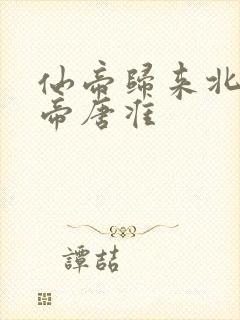 仙帝歸来北
帝唐淮
譚喆